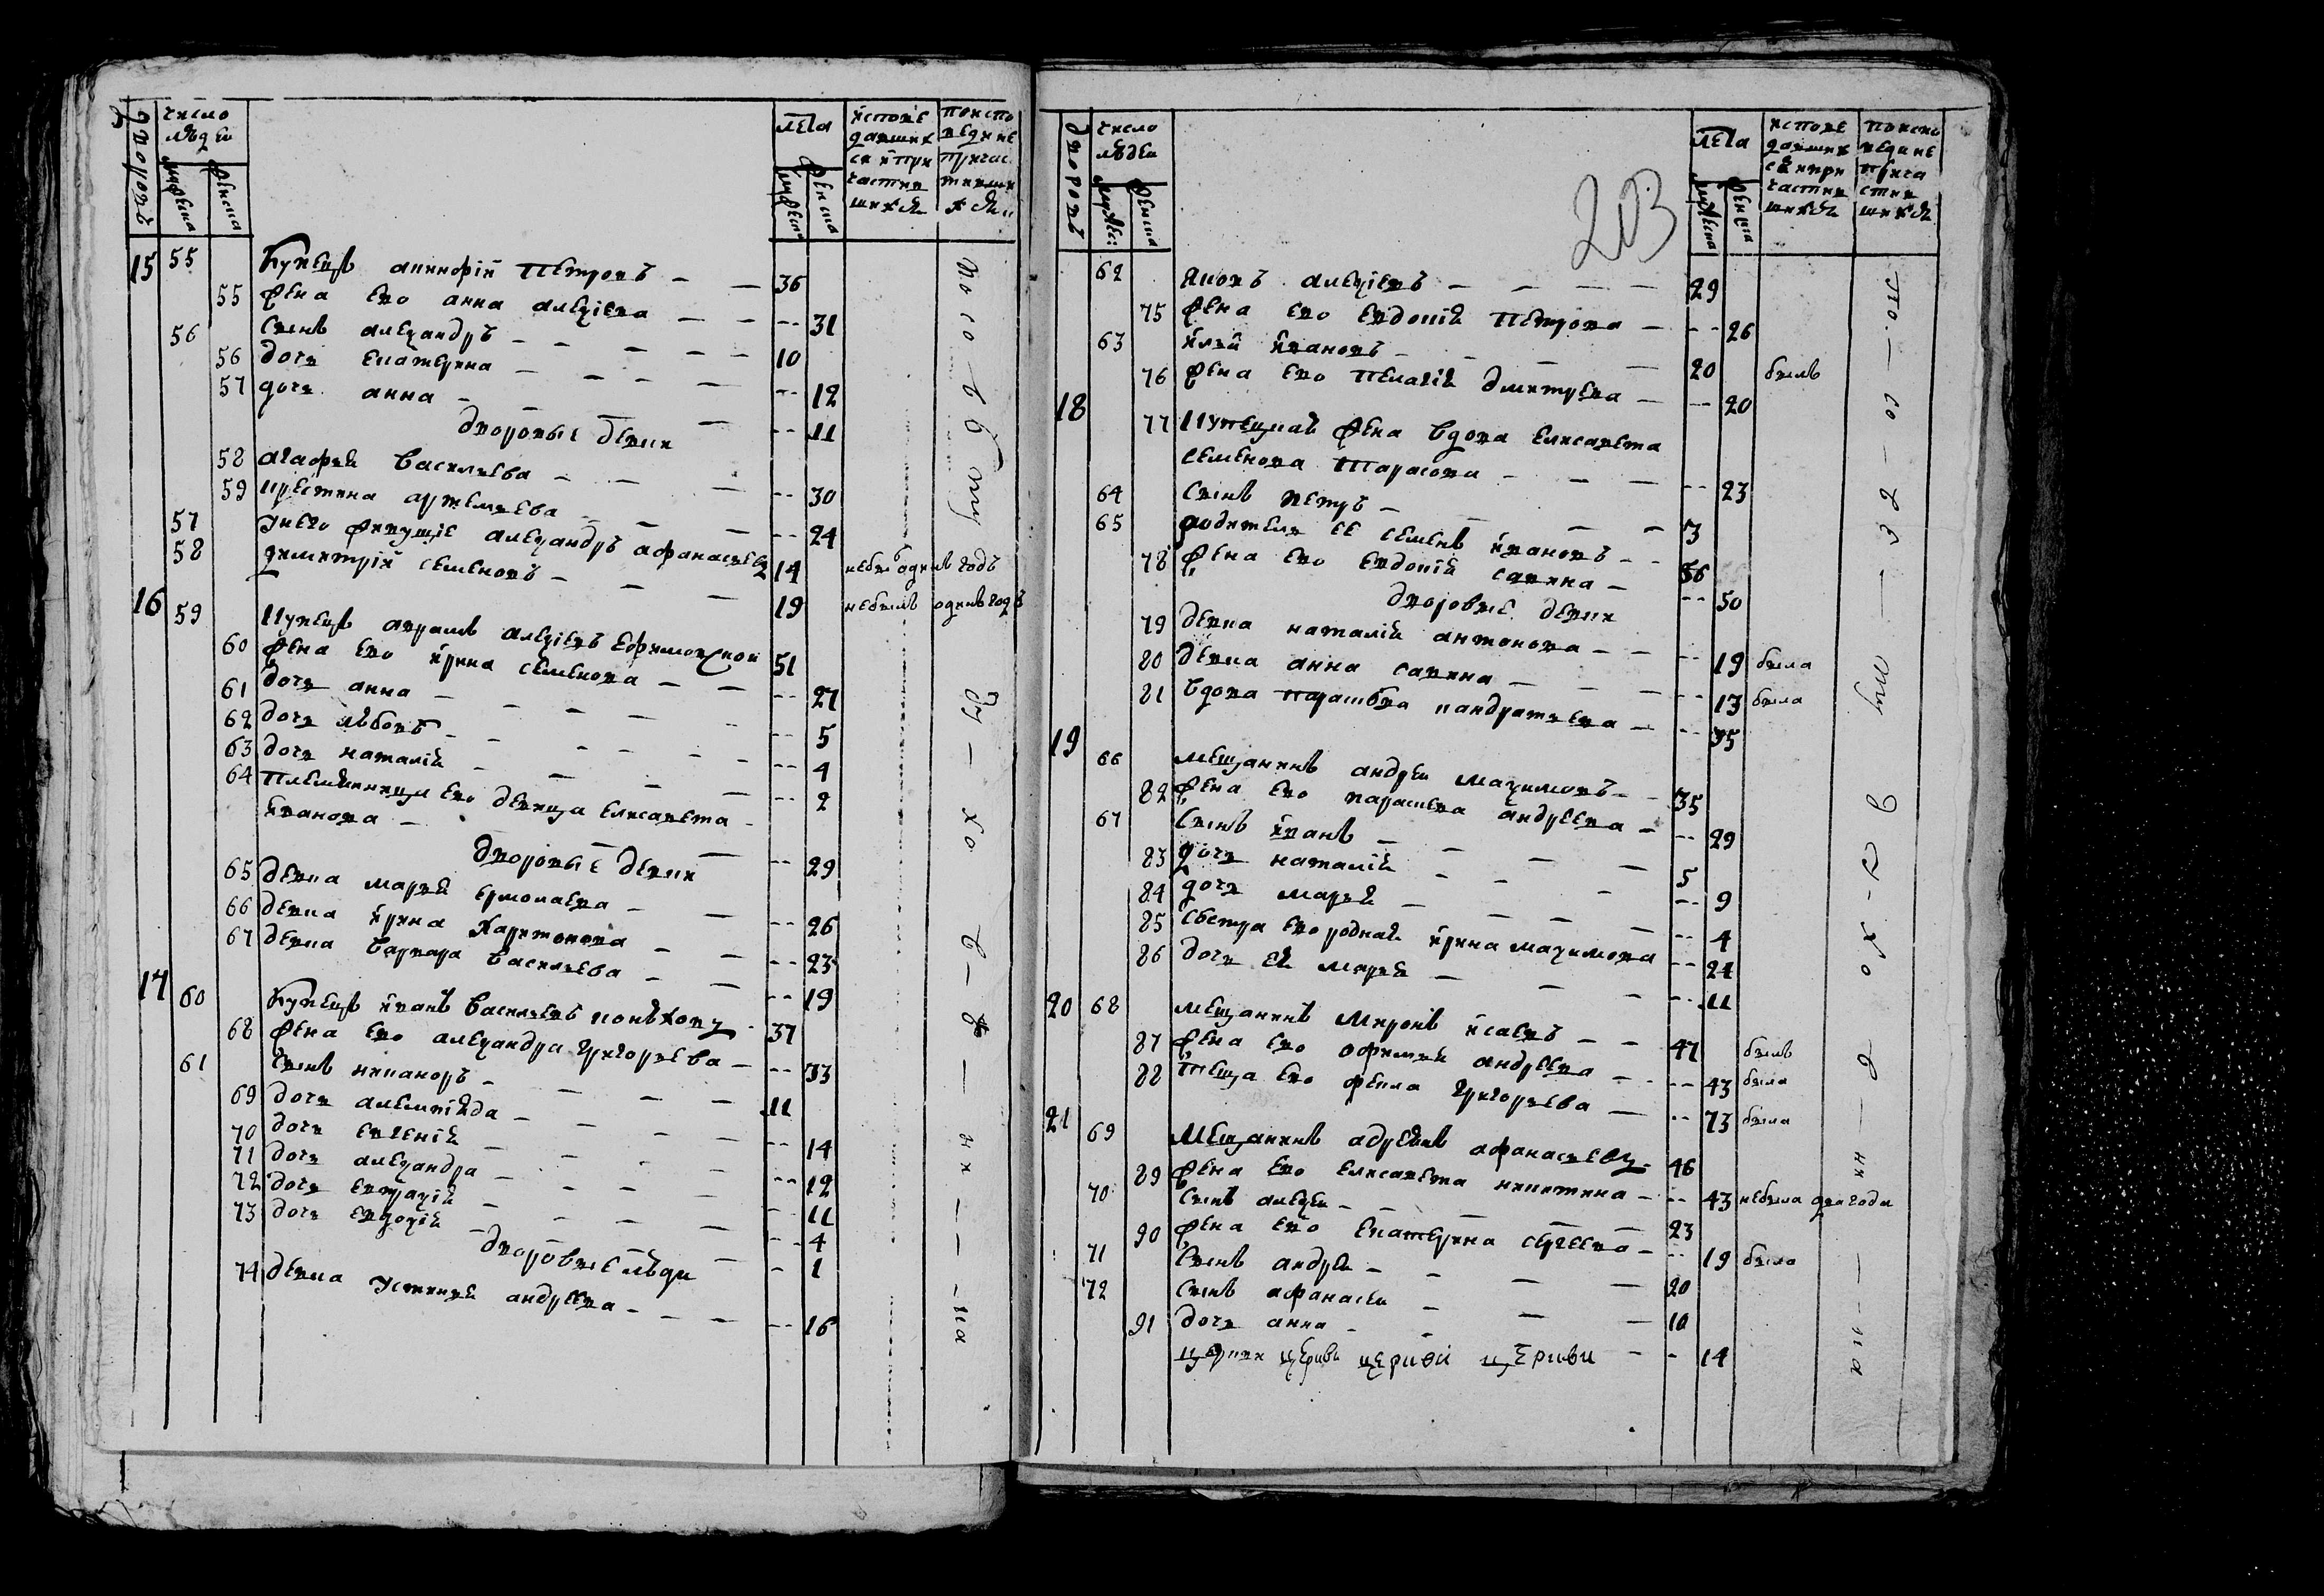 дворовъ
число людеи
мужеска
женска
лета
мужеска
женска
исповедавшихся и причастившихся
по исповеди не причастившихся
15 55 Купецъ аникифїй Петровъ — — 36
55 жена ево анна алеѯіева — — -- 31
56 сынъ алеѯандръ — — — 10
56 дочь екатерина — — — -- 12
57 дочь анна — — — -- 11
дворовые девки
58 агафья васильева — — -- 30
59 кристина артемьева — — -- 24
57 унего живущїе алеѯандръ афанасьевъ 14 небылъ одинъ годъ
58 димитрїй семеновъ — — — 19 небылъ одинъ годъ
16 59 Купецъ аврамъ алеѯіевъ Ефимовской 51
60 жена ево ирина семенова — — -- 27
61 дочь анна — — — -- 5
62 дочь любовь — — — -- 4
63 дочь наталія — — — -- 2
64 племянница ево девица елисавета
иванова — — -- 29
дворовые девки
65 девка марья ермолаева — — -- 26
66 девка ирина Харитонова — — -- 23
67 девка варвара васильева — — -- 19
17 60 Купецъ иванъ васильевъ конюховъ 37
68 жена ево алеѯандра григорьева — -- 33
61 сынъ никаноръ — — — 11
69 дочь алимпіяда — — — -- 14
70 дочь евгенія — — — -- 12
71 дочь алеѯандра — — — -- 11
72 дочь евпраѯія — — — -- 4
73 дочь евдокія — — — - 1
дворовые люди
74 девка устинья андреева — — — -- 16
203
дворовъ
число людеи
мужес:
женска
лета
мужеска
женска
исповедавшихся и причастившихся
по исповеди не причастившихся
62 яковъ алеѯіевъ — — — — 29
75 жена ево евдокія Петрова — -- 26
63 илья ивановъ — — — 20 былъ
76 жена ево пелагія дмитрева — -- 20
18 77 Купецкая жена вдова елисавета
семенова Тарасова — — — -- 23
64 сынъ петръ — — — 3
65 родитель ее семенъ ивановъ — - 56
78 жена ево евдокія савина — -- 50
дворовые девки
79 девка наталія антонова — — -- 19 была
80 девка анна савина — — — -- 13 была
81 вдова парасковья кандратьева — -- 35
19 66 мещанинъ андреи маѯимовъ — 35
82 жена ево параскева андреева — -- 29
67 сынъ иванъ — — — 5
83 дочь наталія — — — -- 9
84 дочь марья — — — -- 4
85 сестра ево родная ирина маѯимова -- 24
86 дочь ея марья — — — -- 11
20 68 мещанинъ Миронъ исаевъ — — 47 былъ
87 жена ево офимья андреева — -- 43 была
88 теща ево фекла григорьева — -- 73 была
21 69 Мещанинъ адреянъ афанасьевъ 46
89 жена ево елисавета никитина — -- 43 небыла два года
70 сынъ алеѯеи — — — 23
90 жена ево екатерина сергеева — -- 19 была
71 сынъ андреи — — — 20
72 сынъ афанасеи — — — 10
91 дочь анна — — — - 14